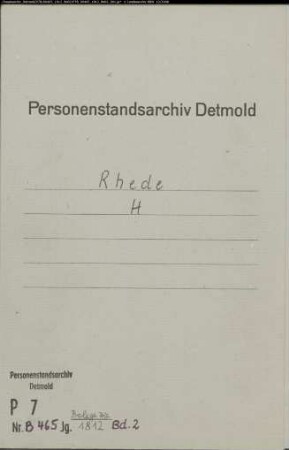 Personenstandsarchiv Detmold
Rhede
H
Personenstandsarchiv
Detmold
P 7
Nr. B 465 Jg. 1812 Bd. 2